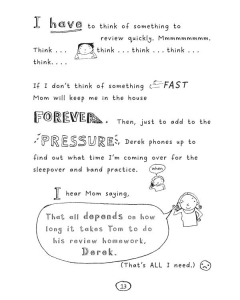 I have to think of something to
review quickly. Mmmmmmmmm.
Think . . . think . . . think . . . think . . .
think. . . .
If I don't think of something FAST
Mom will keep me in the house
FOREVER. Then, just to add to the
PRESSURE, Derek phones up to
find out what time I'm coming over for the
sleepover and band practice.
I hear Mom saying,
That all depends on how
long it takes Tom to do
his review homework,
Derek.
(That's ALL I need.)
13